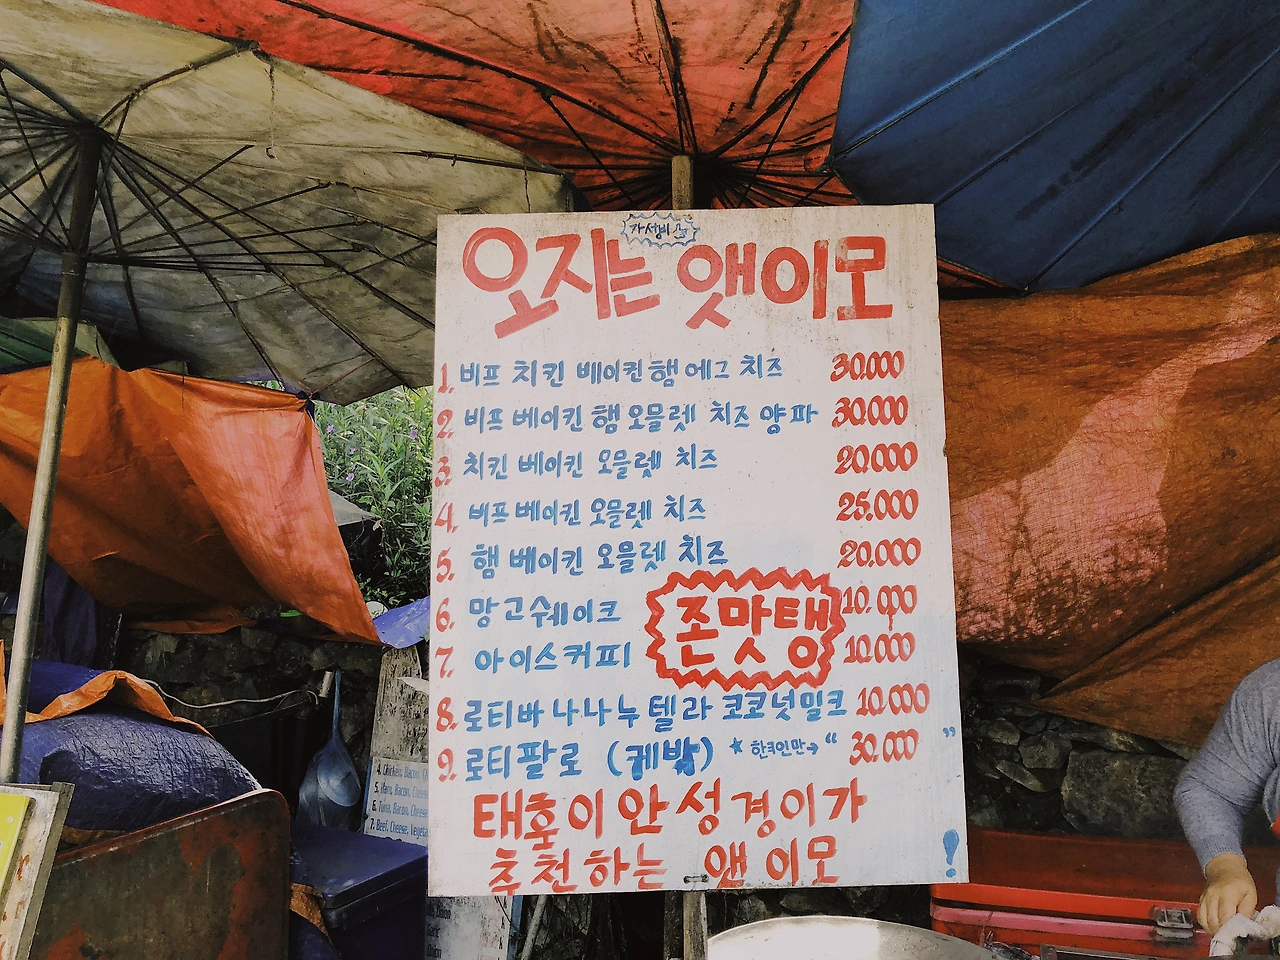 가성비
오지는 앳이모
1. 비프 치킨 베이컨 햄 에그 치즈 30.000
2. 비프 베이킨 햄 오믈렛 치즈 양파 30.000
3. 치킨 베이킨 오믈렛 치즈 20.000
4. 비프 베이킨 오믈렛 치즈 25.000
5. 햄 베이킨 오믈렛 치즈 20.000
6. 망고쉐이크 10.000
존맛탱
7. 아이스커피 10.000
8. 로티바나나누텔라 코코넛밀크 10.000
9. 로티팔로 (케밥) ★한국인만→ " 30.000 "
태호이안성경이가
추천하는 앳이모!
4. Chicken, Bacon,
5. Ham, Bacon, Cheese
6. Tuna, Bacon, Cheese
7. Beef, Cheese,